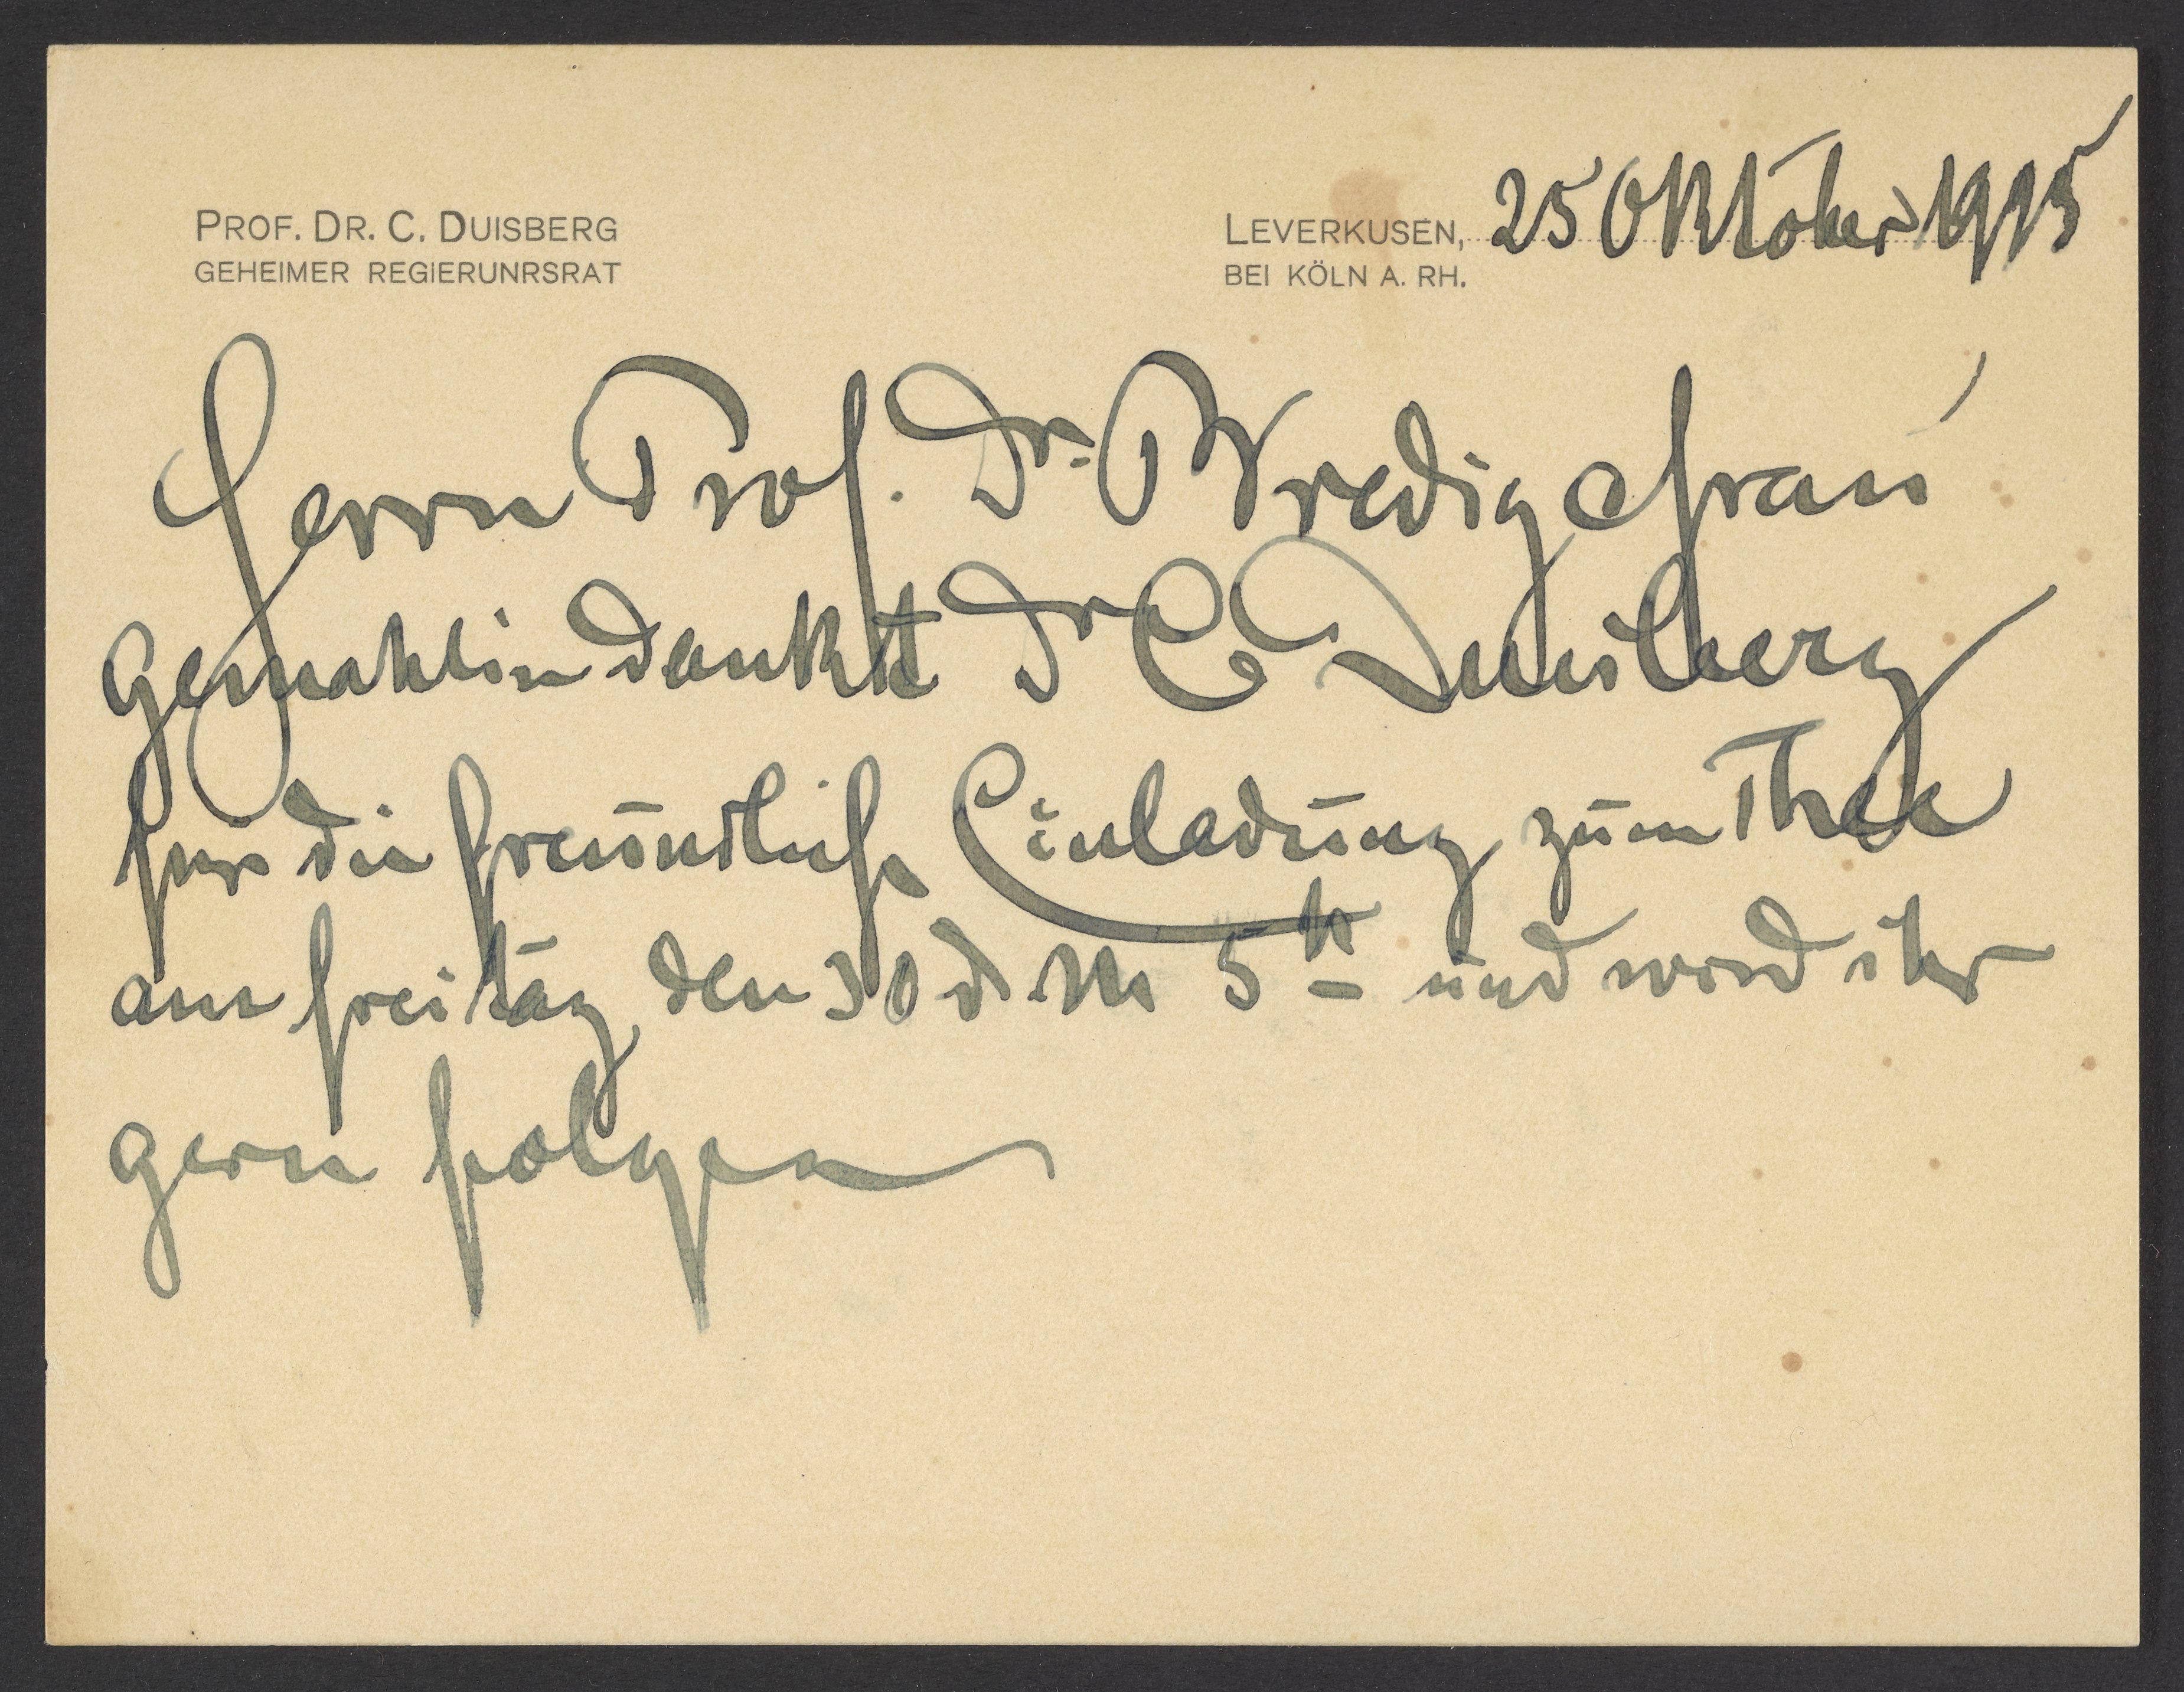 PROF. DR. C. DUISBERG
GEHEIMER REGIERUNRSRAT
LEVERKUSEN, 25 Oktober 1915
BEI KÖLN A. RH.
Herrn Prof. Dr. Bredig & Frau
Gemahlin dankt Dr C Duisberg
für die freundliche Einladung zum Thee
am Freitag den 30 d. M 5 h und wird ihr
gern folgen